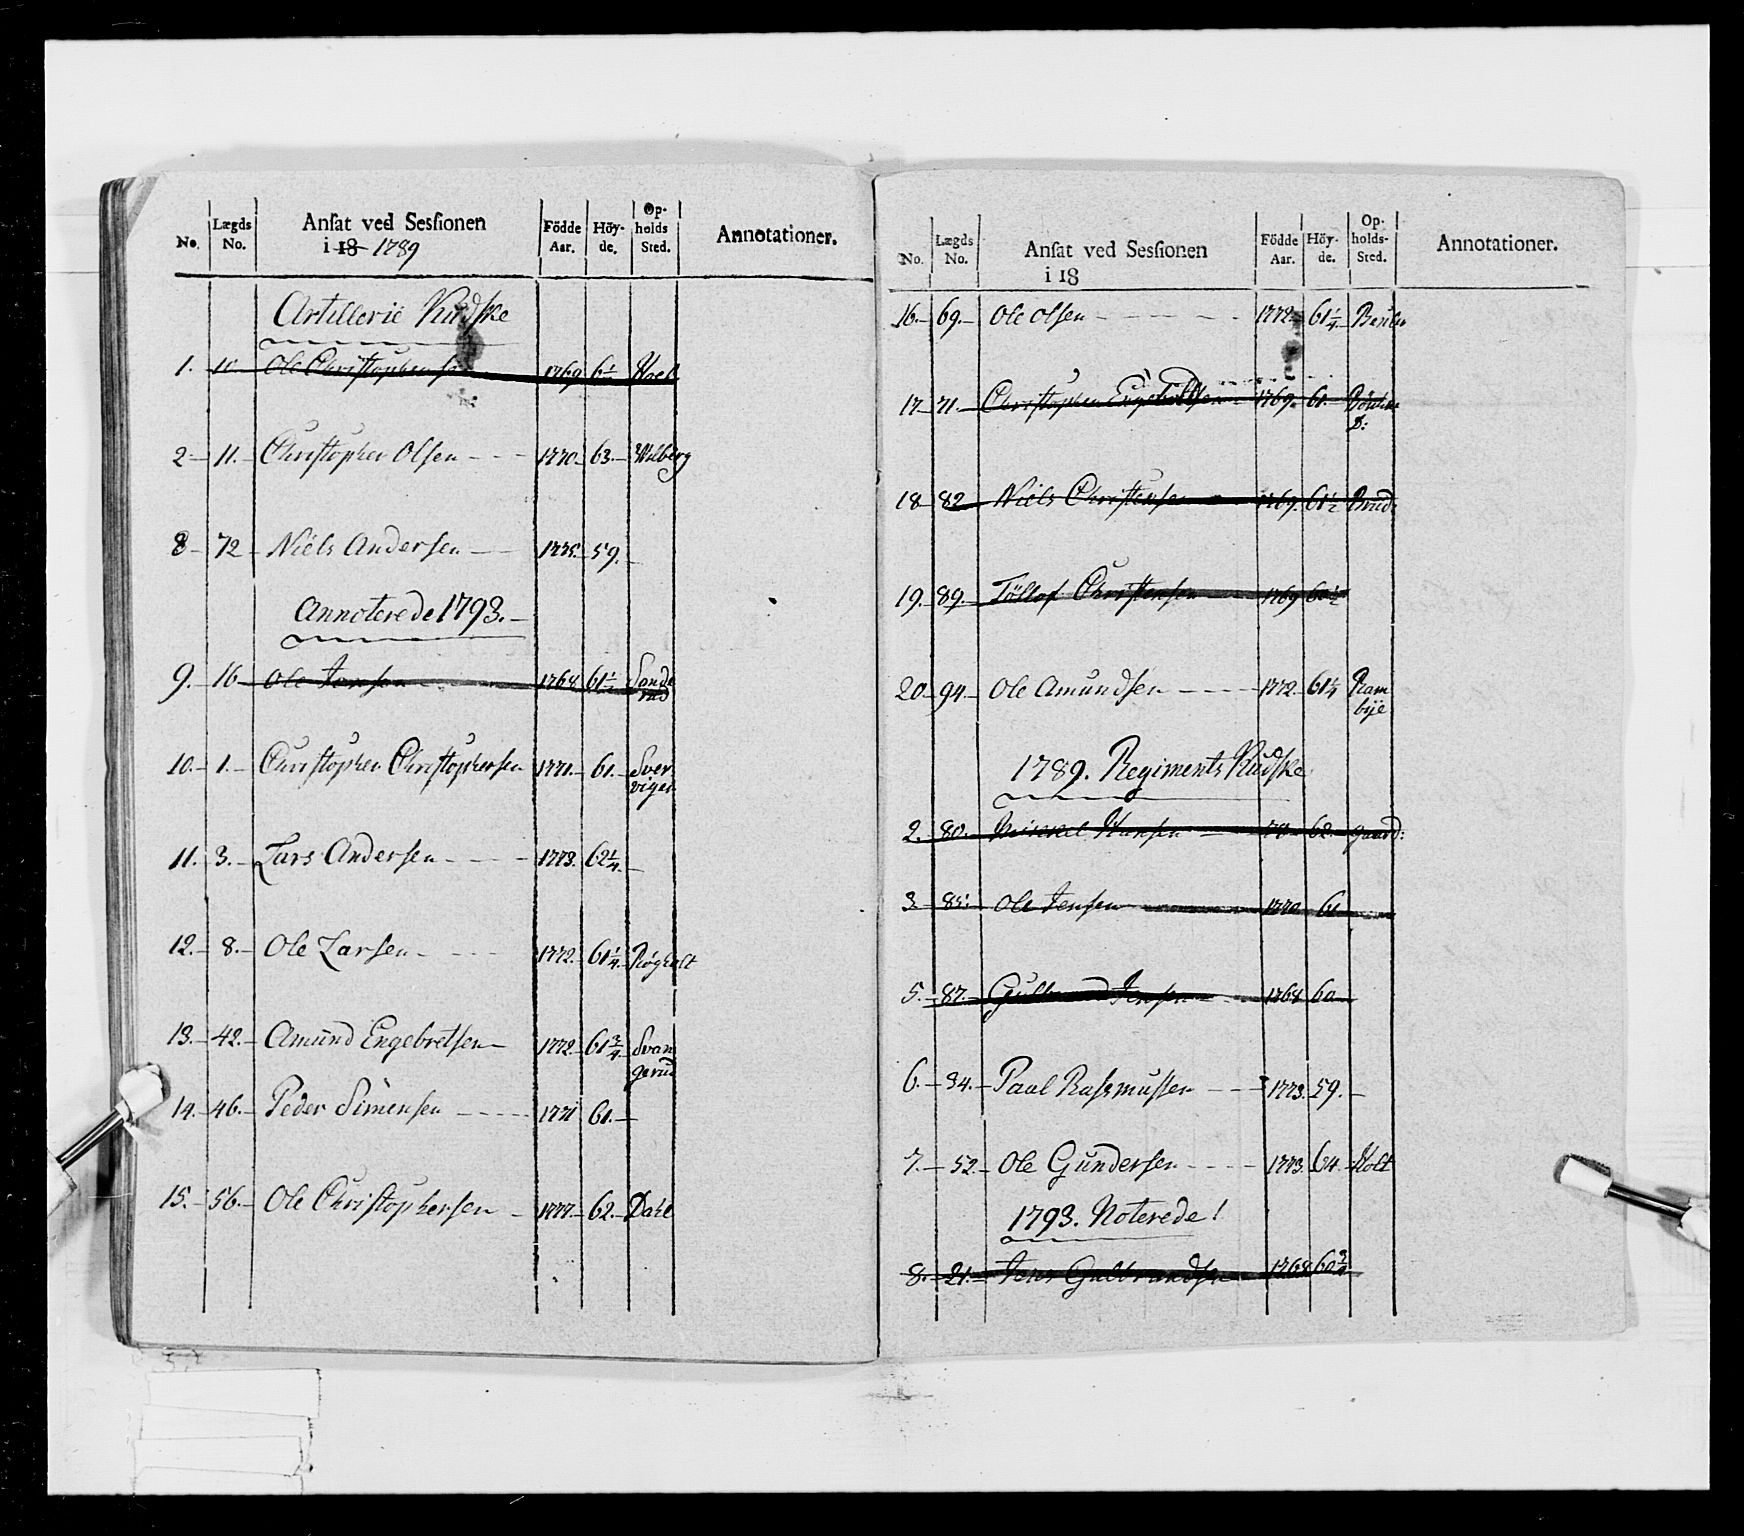 No. Lægds No. Ansat ved Sessionen i 18 1789 Födde Aar. Höy-de. Op-holds Sted. Annotationer.
Artillerie Kudske
1. Ole Christophersen 1769 Hoel
2 11. Christopher Olsen 1770. 63. Wilberg
8 72 Niels Andersen 1775. 59.
Annoterede 1793.
9. 16 Ole Jonsen 1768 61½ Sande
rud
10. 1. Christopher Christophersen 1771. 61. Sver
viger
11. 3. Lars Andersen 1773. 62¼.
12. 8. Ole Larsen 1772. 61¼. Røgholt
13. 42. Amund Engebretsen 1772. 61¾. Svan
gerud
14. 46. Peder Simensen 1771 61.
15. 56. Ole Christophersen 1777. 62. Dahl
No. Lægds No. Ansat ved Sessionen i 18 Födde Aar. Höy-de. Op-holds-Sted. Annotationer.
16. 69. Ole Olsen 1772. 61¼.
17 71. Christopher 1769. 61.
18 82 Niels Christensen 1769. 61½ Brud:
19. 89. Tollof Christensen 1769 60½
20. 94. Ole Amundsen 1772 61¼ Ram
bye
1789. Regiments Kudske
2. 80. Hansen 70 62. gaard:
3 85. Ole Jensen 1770 61
5. 87. Gulbrand Jensen 1768 60
6. 34. Paal Rasmussen 1773. 59.
7. 52. Ole Gundersen 1773. 64. Holt
1793. Noterede!
8. 21. Jens Gulbrandsen 1768 60¾